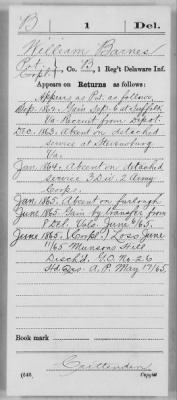 B | 1 | Del.
William Barnes
Pvt. Corpl., Co. B, 1 Reg't Delaware Inf.
Appears on Returns as follows:
Appears as Pvt. as follows
Sep. 1862. Sep. 6 at Suffolk
Va. Recruit from Depot.
Dec. 1863. Absent on detached
service at Stevensburg
Va.
Jan. 1864. Absent on detached
service 3 Div. 2 Army
Corps.
Jan. 1865. Absent on furlough
June 1865. Gain by transfer from
8 Del. Vols. June 6/65.
June 1865. (Corpl.) Loss June
11/65 Munsons Hill
Dischd. G.O. No. 26
Hd. Qrs. A.P. May 17/65.
Book mark
Crittenden
(546) Copyist